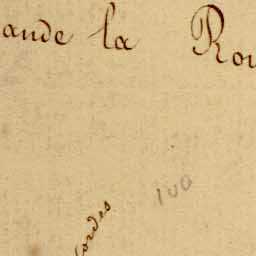 ande la Rou
cordes
100